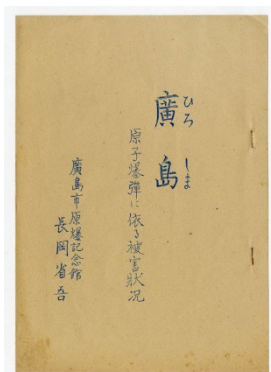 廣島
ひろしま
原子爆彈に依る被害狀況
廣島市原爆記念館
長岡省吾